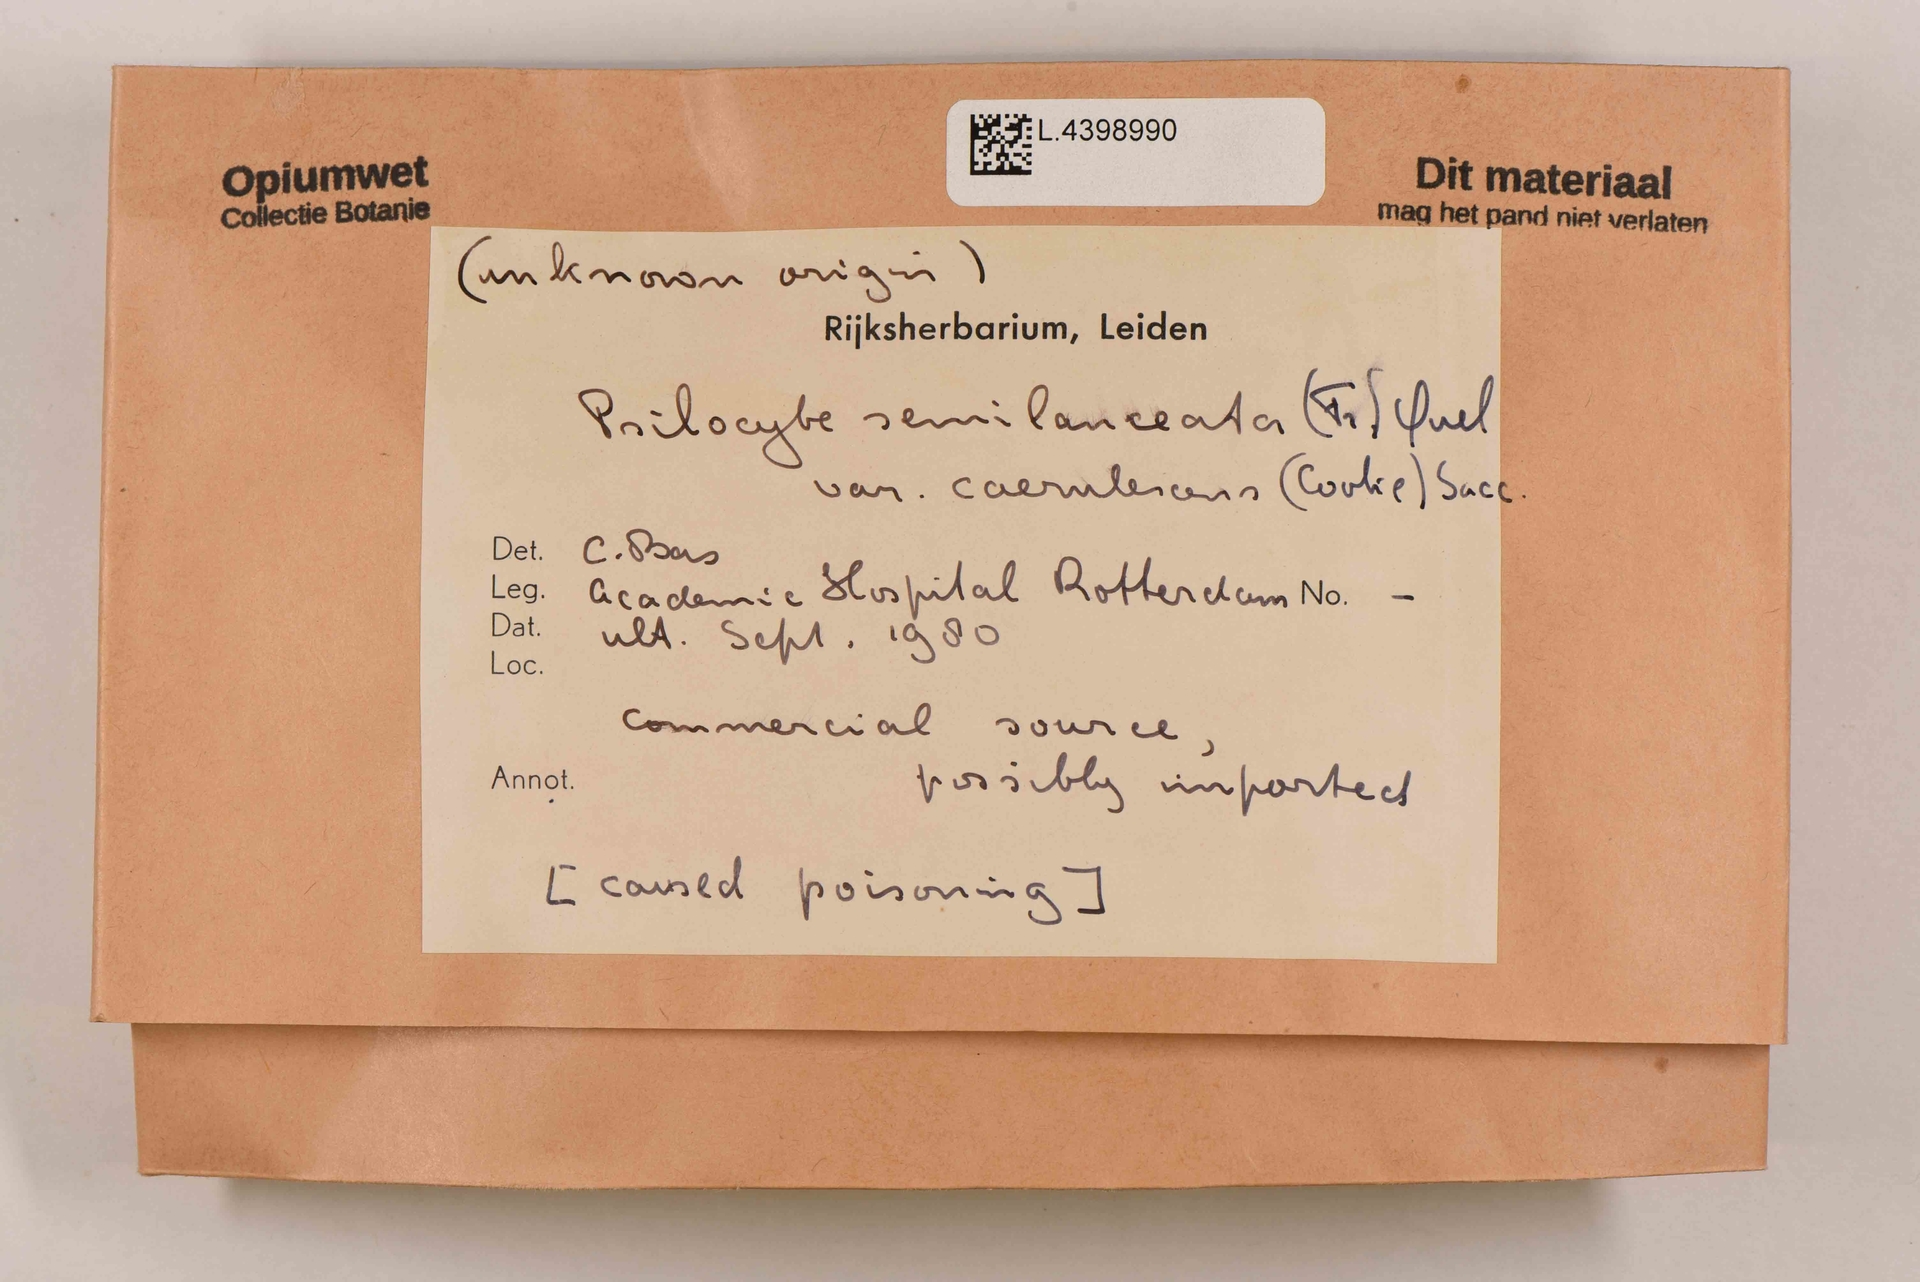 L.4398990
Opiumwet
Collectie Botanie
Dit materiaal
mag het pand niet verlaten
(unknown origin)
Rijksherbarium, Leiden
Psilocybe semilanceata (Fr.) Quel
var. caerulescens (Cooke) Sacc.
Det. C. Bas
Leg. Academic Hospital Rotterdam No. -
Dat. ult. Sept. 1980
Loc.
commercial source,
Annot. possibly imported
[caused poisoning]